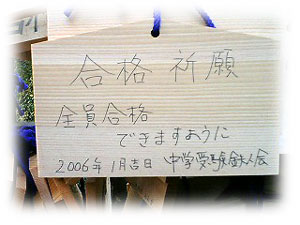 合格祈願
全員合格
できますように
2006年1月吉日 中学受験鉄人会